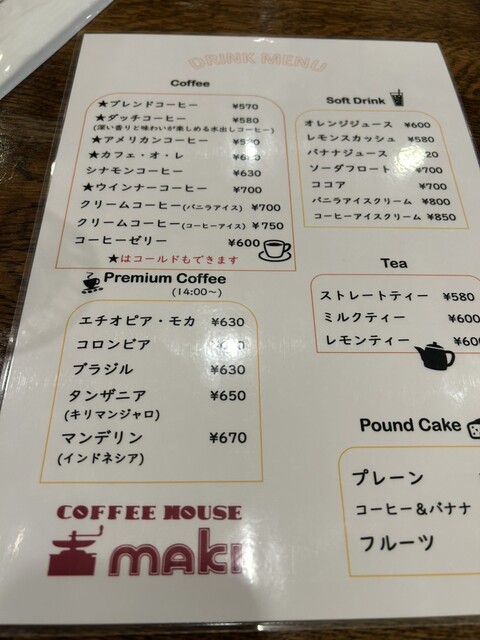 DRINK MENU
Coffee
★ブレンドコーヒー ¥570
★ダッチコーヒー ¥580
(深い香りと味わいが楽しめる水出しコーヒー)
★アメリカンコーヒー
★カフェ・オ・レ
シナモンコーヒー ¥630
★ウインナーコーヒー ¥700
クリームコーヒー(バニラアイス) ¥700
クリームコーヒー(コーヒーアイス) ¥750
コーヒーゼリー ¥600
★はコールドもできます
Premium Coffee
(14:00〜)
エチオピア・モカ ¥630
コロンビア
ブラジル ¥630
タンザニア ¥650
(キリマンジャロ)
マンデリン ¥670
(インドネシア)
COFFEE HOUSE
maki
Soft Drink
オレンジジュース ¥600
レモンスカッシュ ¥580
バナナジュース
ソーダフロート ¥700
ココア ¥700
バニラアイスクリーム ¥800
コーヒーアイスクリーム ¥850
Tea
ストレートティー ¥580
ミルクティー ¥600
レモンティー ¥600
Pound Cake
プレーン
コーヒー&バナナ
フルーツ